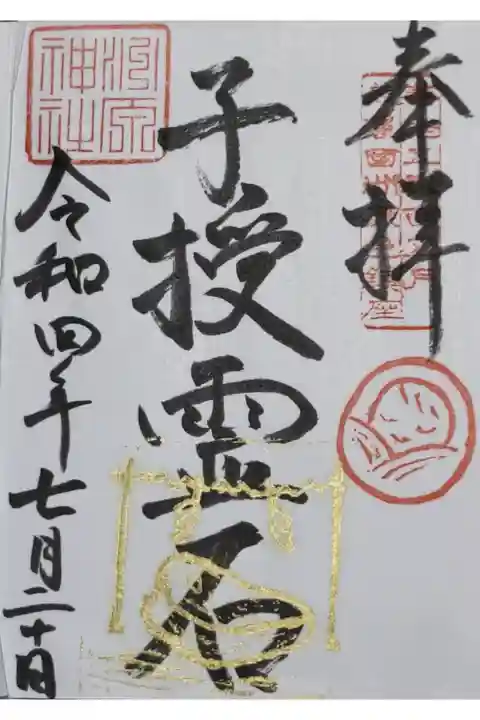 奉拝
子授霊石
令和四年七月二十日
洲原神社